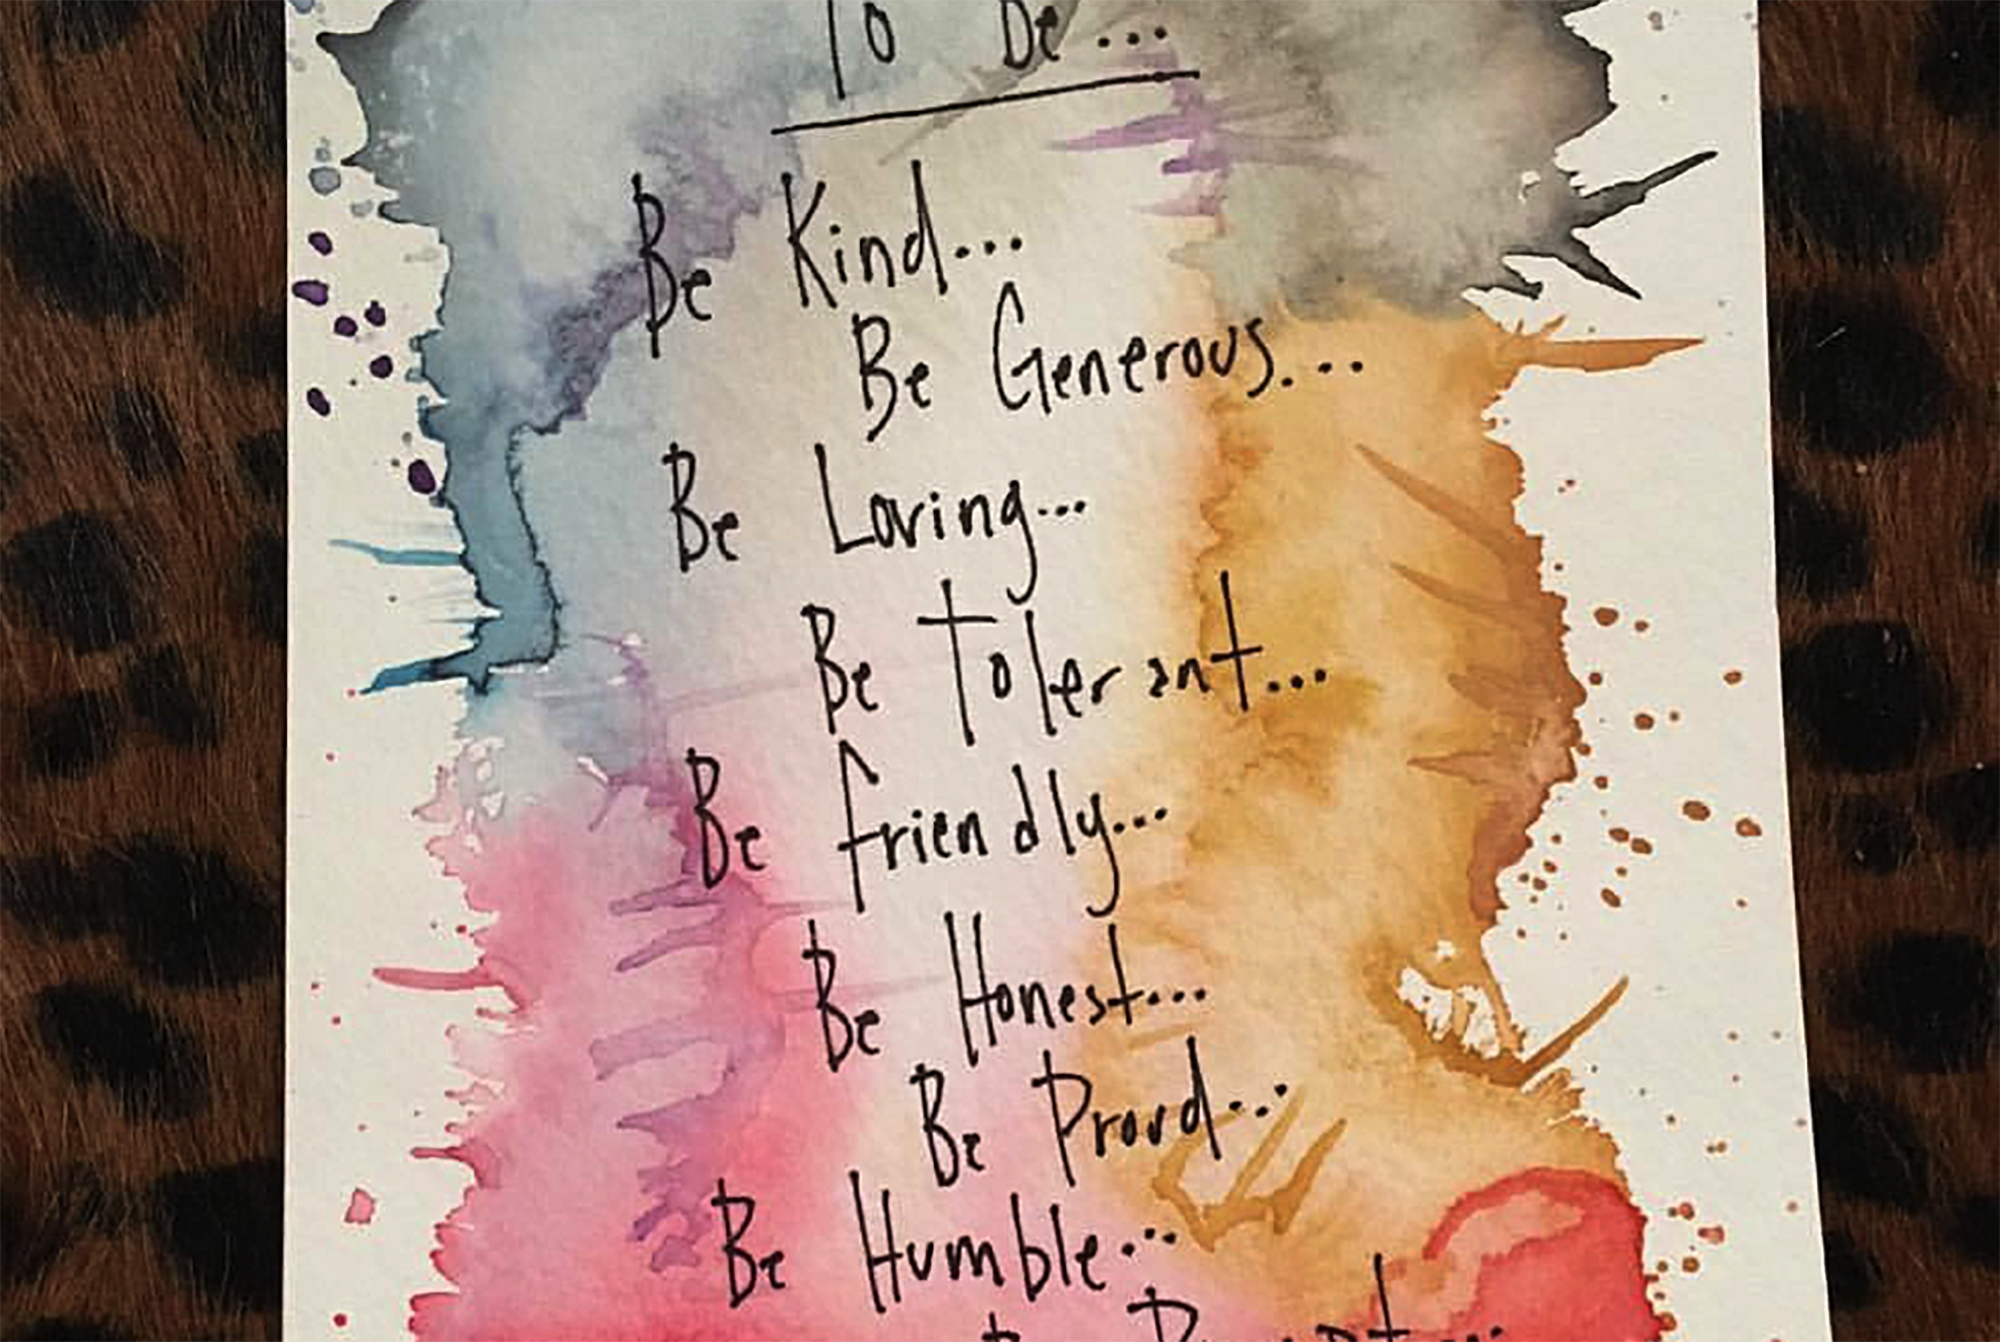 To Be...
Be Kind...
Be Generous...
Be Loving...
Be Tolerant...
Be friendly...
Be Honest...
Be Proud...
Be Humble...